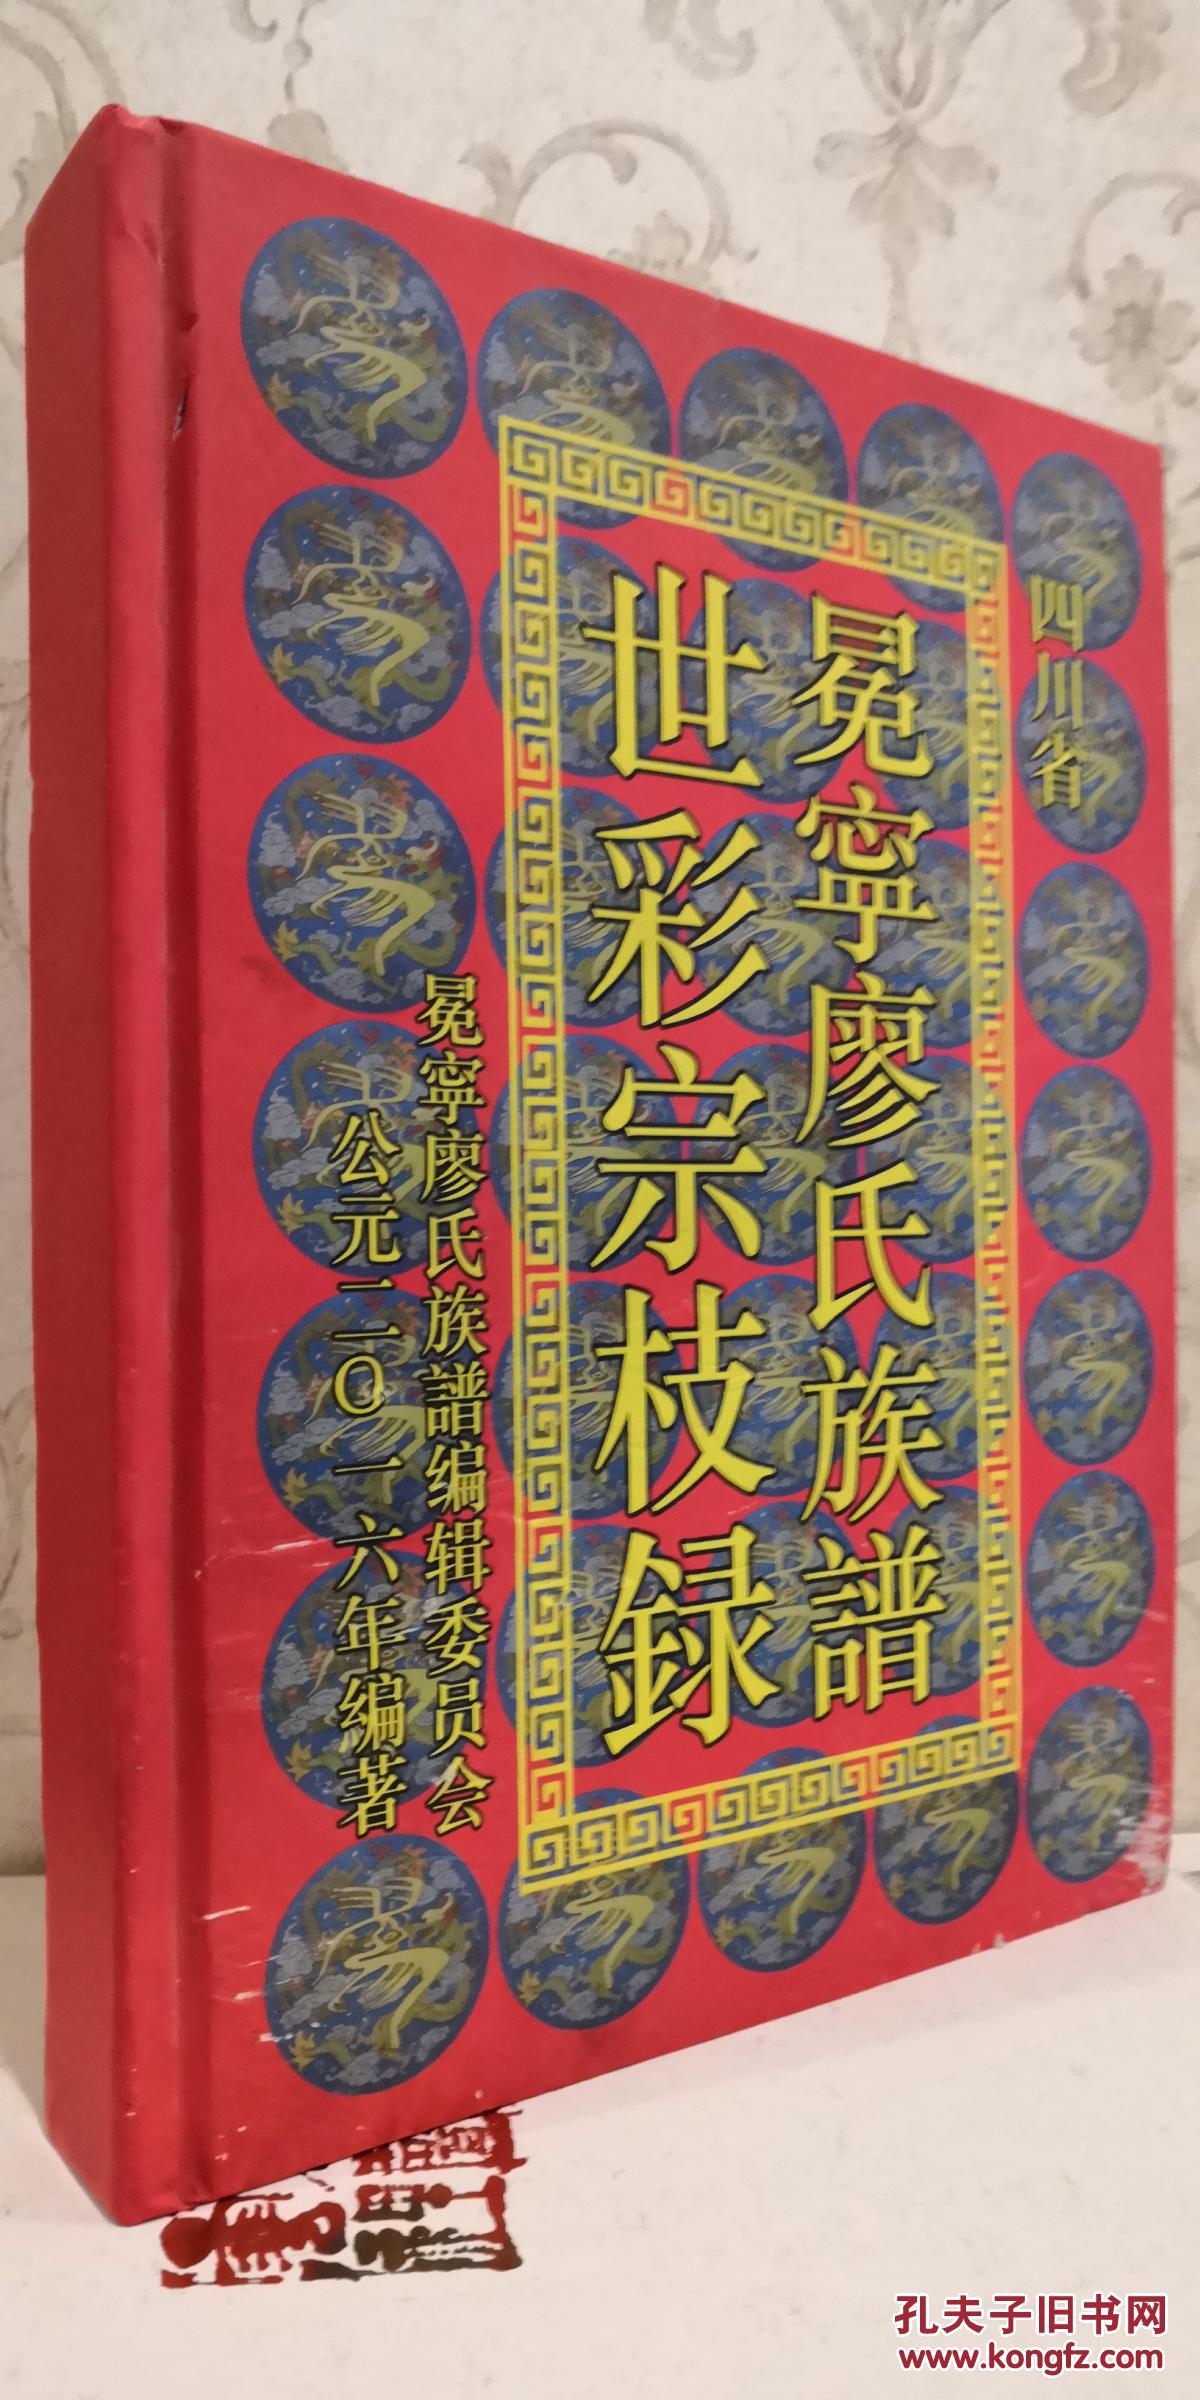 四川省
冕寜廖氏族譜
世彩宗枝録
冕寜廖氏族譜编辑委员会
公元二〇一六年编著
孔夫子旧书网
www.kongfz.com